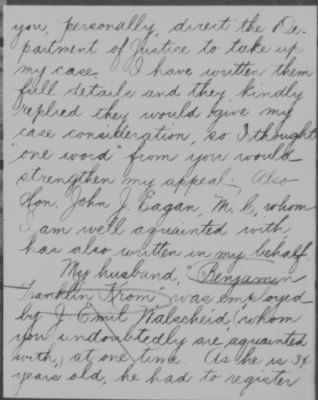 you, personally, direct the De-
partment of Justice to take up
my case. I have written them
full details and they kindly
replied they would give my
case consideration, so I thought
"one word" from you would
strengthen my appeal. Also
Hon. John J. Eagan, M.C. whom
I am well aquainted with,
has also written in my behalf.
My husband, "Benjamin
Franklin Krom" was employed
by J. Emil Walscheid, (whom
you undoubtedly are aquainted
with,) at one time. As he is 34
years old, he had to register